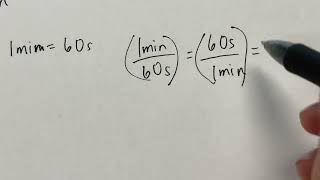 1min = 60s (1min/60s) = (60s/1min) =